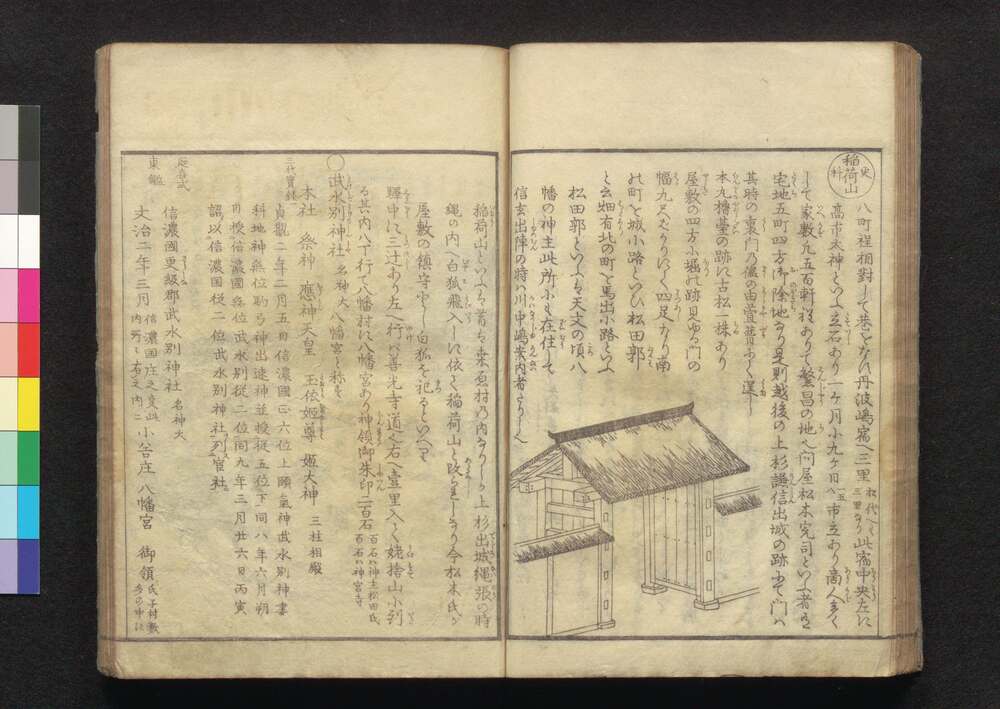 稲荷山
更科
八町程相對して巷をなす丹波嶋宿へ三里 松代へも三里なり 此宿中央左に
高市太神といふ立石あり一ケ月小九ケ日 市立あり商人多く
して家數凡五百軒程ありて繁昌の地也問屋松木
宅地五町四方御除地なり是則越後の上杉謙信出城の跡にて門は
其時の裏門乃儘の由萱葺ふく
本丸櫓臺の跡に古松一株あり
屋敷の四方小堀の跡見ゆる門の
幅九尺ばかりにして四足なり南
の町を城小路といひ松田郭
と云如有北の町を馬出小路といふ
松田郭といふも天文の頃八
幡の神主此所小も在住して
信玄出陣の時は川中嶋案内者なりしと
稲荷山といふも昔は桑原村の内なりしが上杉出城縄張の時
縄の内へ白狐飛入しに依て稲荷山と改られしなり今松木氏が
屋敷の鎮守とし白狐を祀るといへり
驛中に三辻あり左へ行は善光寺道也右へ壹里入て姥捨山小到
る其内八丁行八幡村に八幡宮あり神領御朱印二百石 百石は神主松田氏 百石は神宮寺
武水別神社 名神大 八幡宮と称す
本社 祭神 應神天皇 玉依姫尊 姫大神 三柱相殿
三代實録 貞觀二年二月五日信濃國正六位上頤氣神武水別神妻
科地神無位馬弓神出速神並授從五位下同八年六月朔
日授信濃國無位武水別從二位同九年三月廿六日丙寅
詔以信濃國從二位武水別神社列官社
延喜式 信濃國更級郡武水別神社 名神大
東鑑 文治二年三月 信濃國庄之 小谷庄 八幡宮 御領